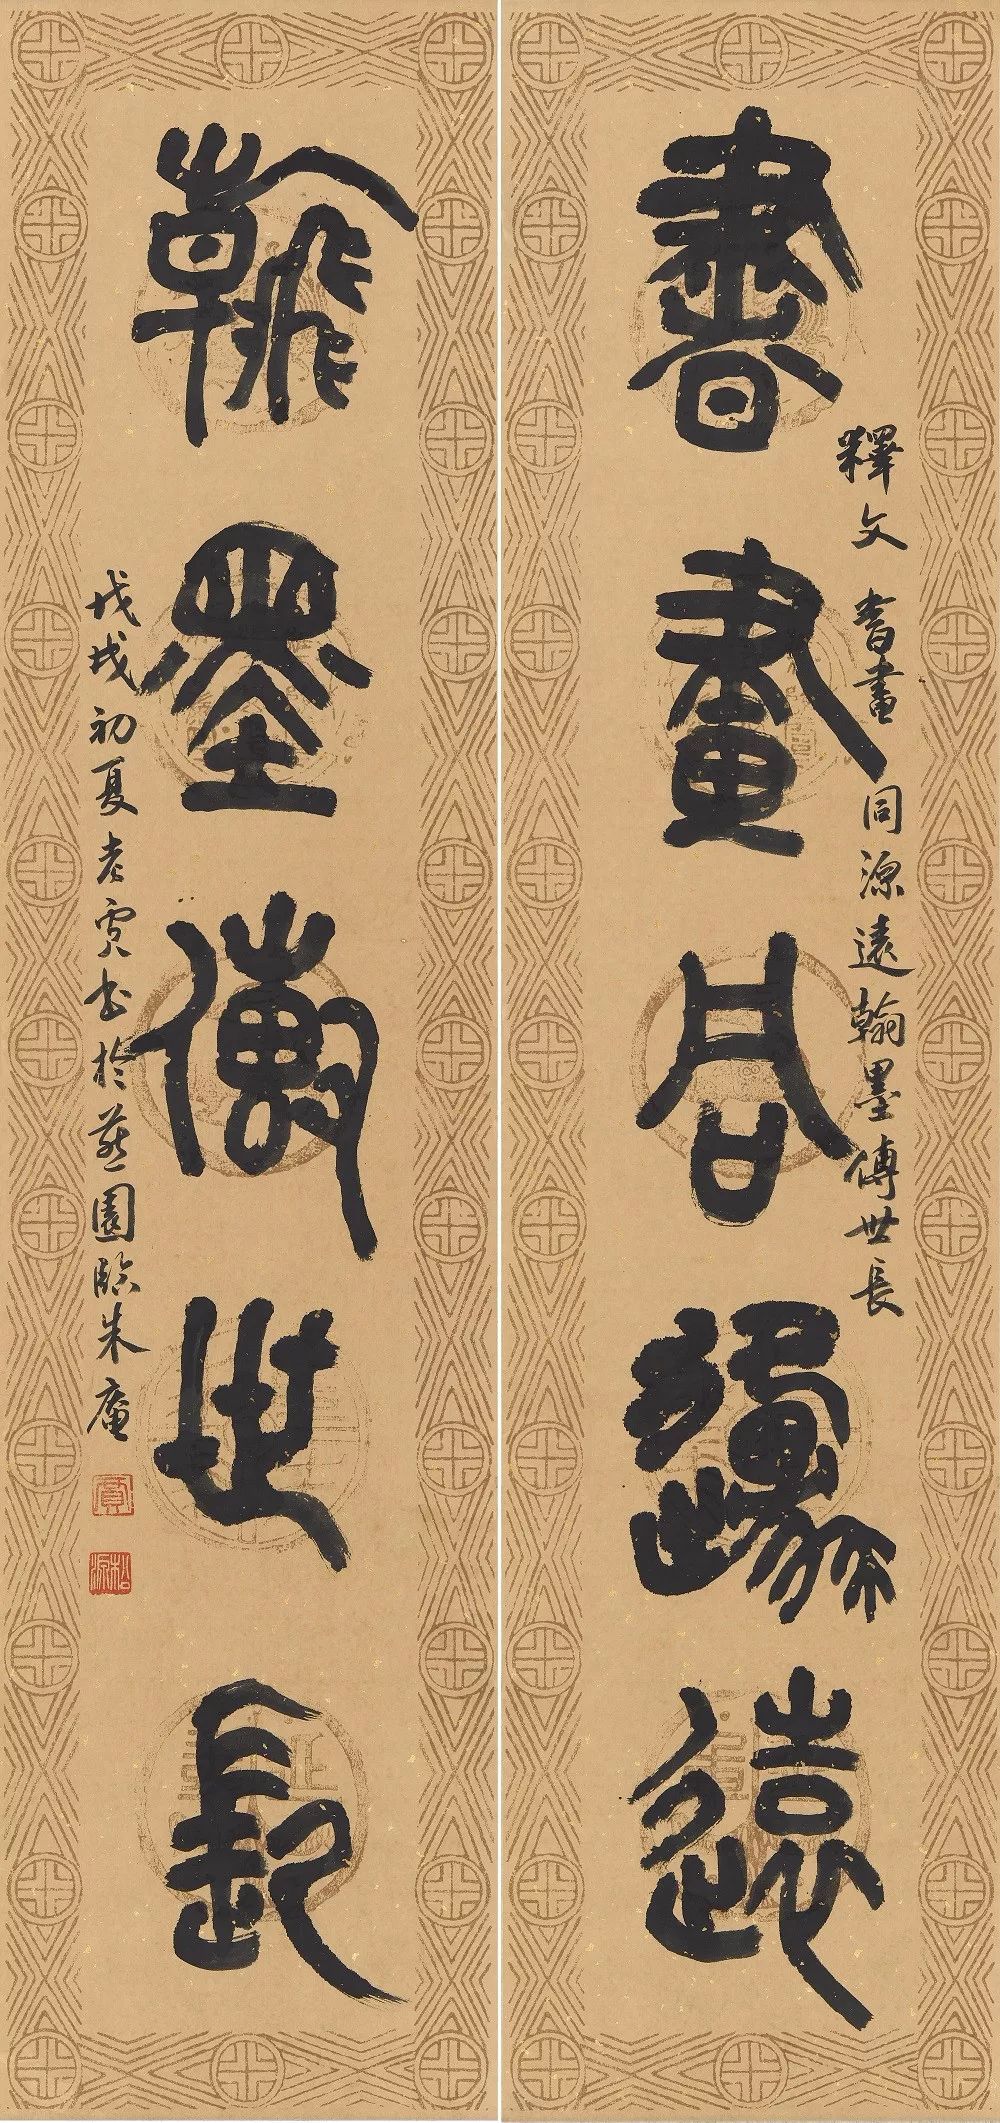 書畫同源遠
釋文 書畫同源遠翰墨傳世長
翰墨傳世長
戊戌初夏老賈书於燕園臨朱庵
賈
松源